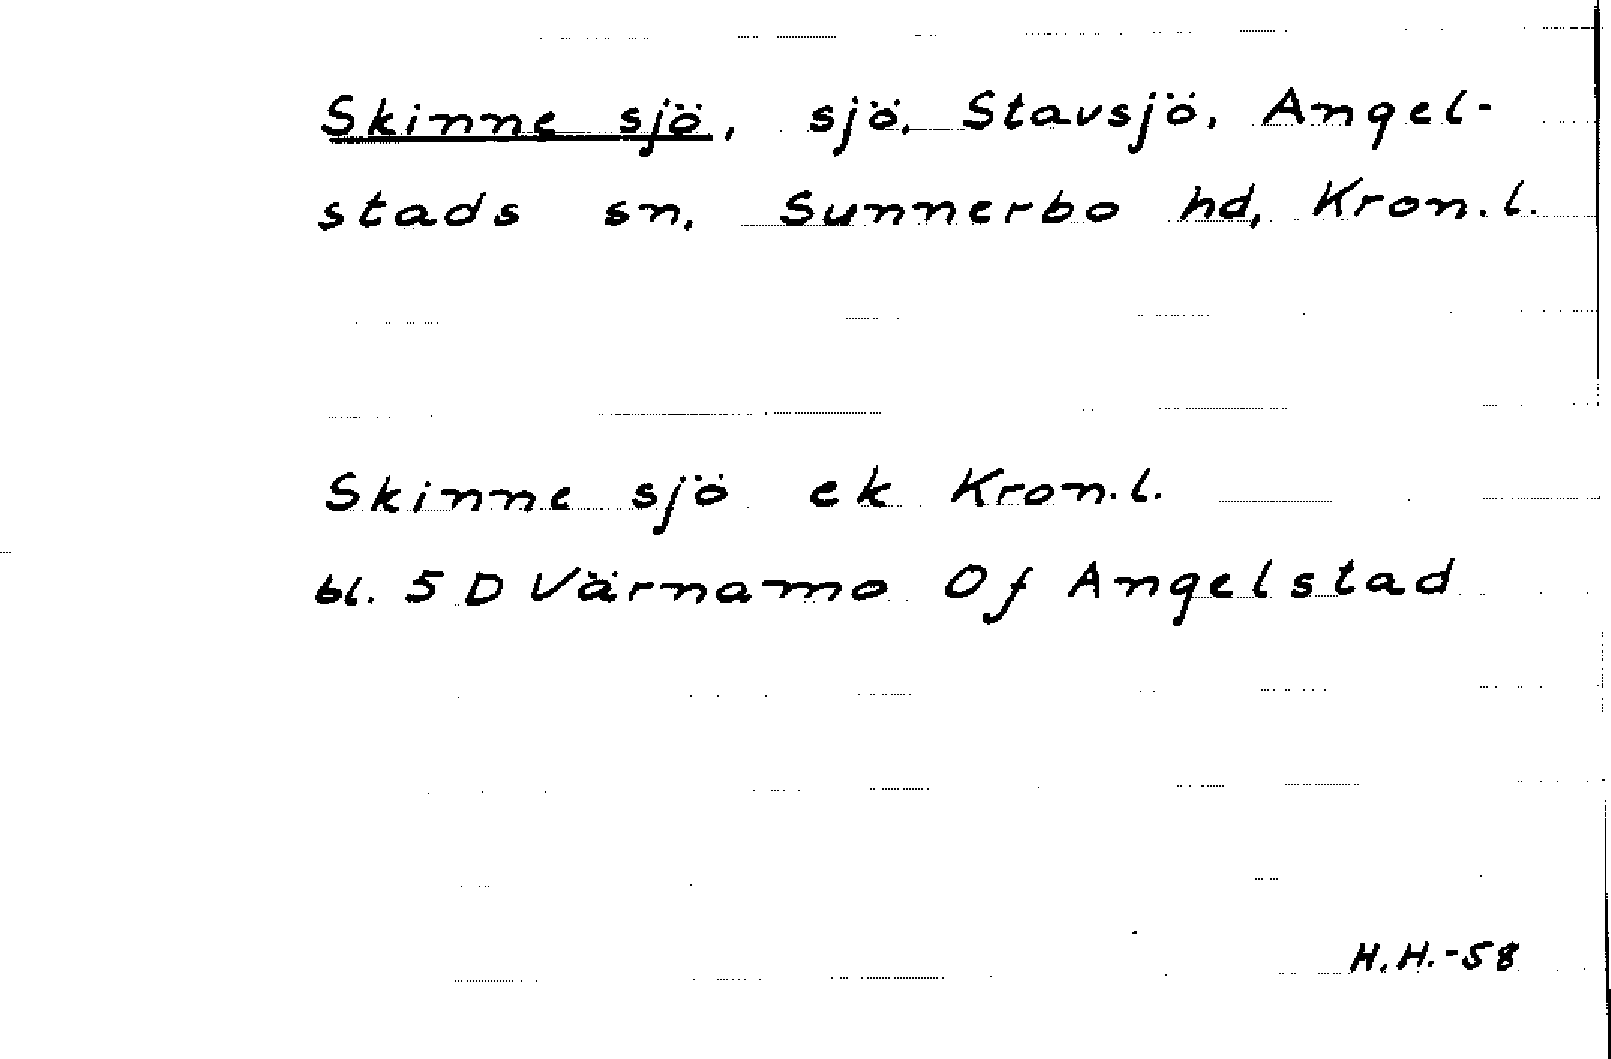 Skinne sjö, sjö, Stavsjö, Angel-
stads sn, Sunnerbo hd, Kron.l.
Skinne sjö ek Kron.l.
bl. 5 D Värnamo Of Angelstad
H.H.-58